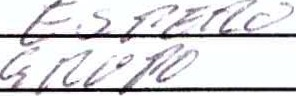 ESPERO
GRUPO